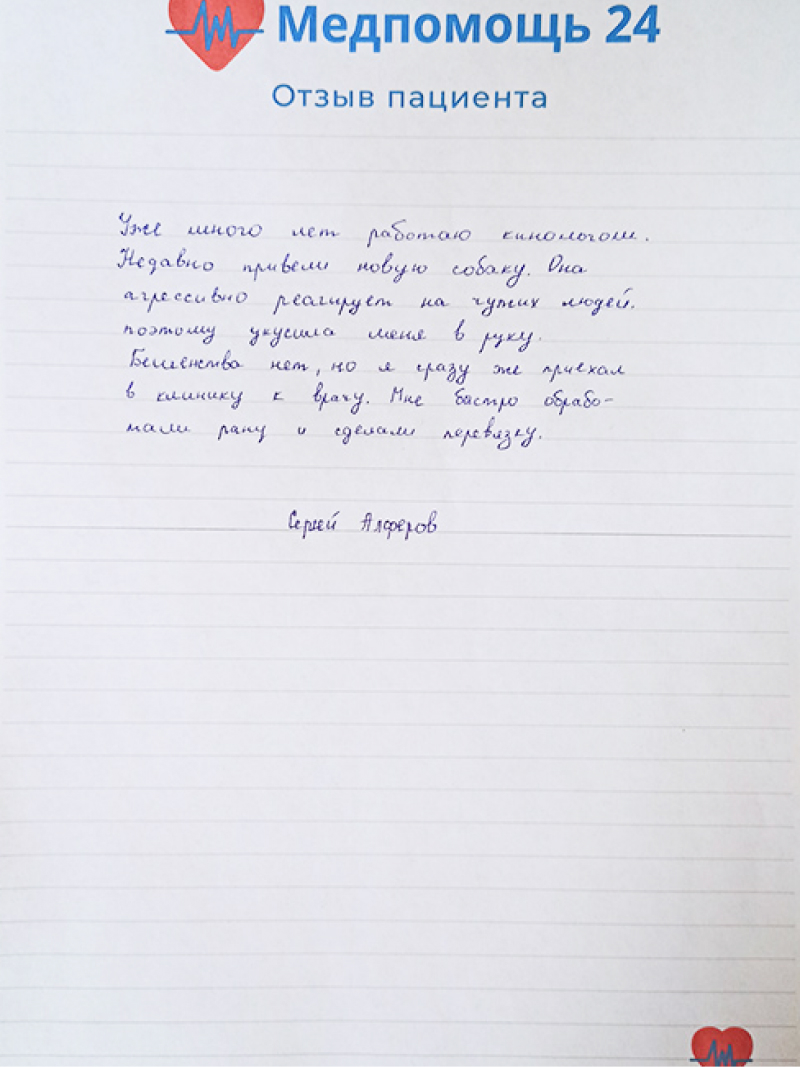 Медпомощь 24
Отзыв пациента
Уже много лет работаю кинологом.
Недавно привели новую собаку. Она
агрессивно реагирует на чужих людей.
поэтому укусила меня в руку.
Бешенства нет, но я сразу же приехал
в клинику к врачу. Мне быстро обрабо-
тали рану и сделали перевязку.
Сергей Алферов